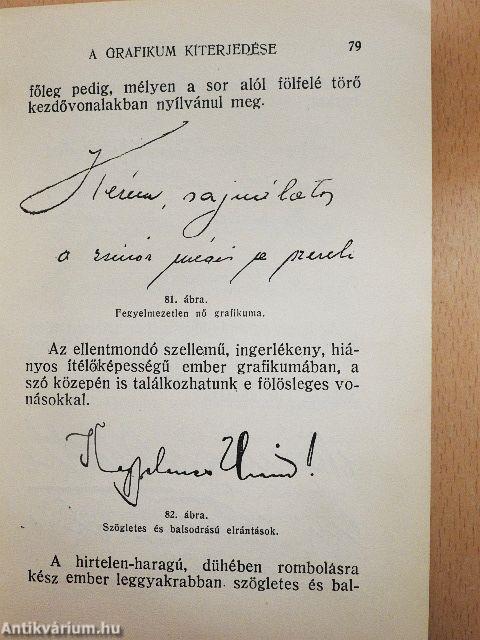 A GRAFIKUM KITERJEDÉSE 79
főleg pedig, mélyen a sor alól fölfelé törő
kezdővonalakban nyílvánul meg.
Kérem, sajnálatos
a
81. ábra.
Fegyelmezetlen nő grafikuma.
Az ellentmondó szellemű, ingerlékeny, hiá-
nyos ítélőképességű ember grafikumában, a
szó közepén is találkozhatunk e fölösleges vo-
násokkal.
82. ábra.
Szögletes és balsodrású elrántások.
A hirtelen-haragú, dühében rombolásra
kész ember leggyakrabban szögletes és bal-
Antikvárium.hu